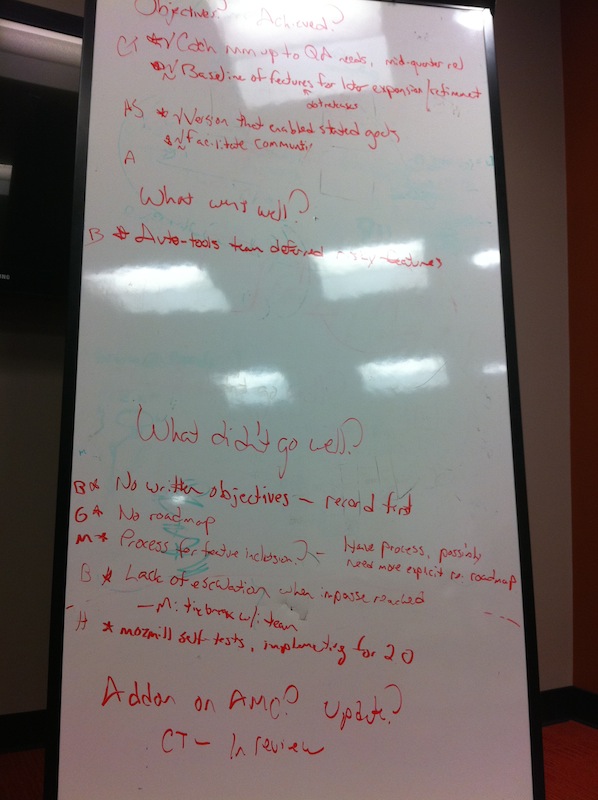 Objectives? Achieved?
CT * √ Catch mm up to QA needs, mid-quarter rel
* √ Baseline of features for later expansion/refinemet
databases
AS * √ Version that enabled stated goals
* √ Facilitate communiti
A
What went well?
B * Auto-tools team deferred features
What didn't go well?
B * No written objectives - record first
G * No roadmap
M * Process for feature inclusion? - Have process, possibly
need more explicit re: roadmap
B * Lack of escalation when impasse reached
- M: tiebreak w/i team
H * mozmill self-tests, implementing for 2.0
Addon on AMO? Update?
CT - In review
SAMSUNG